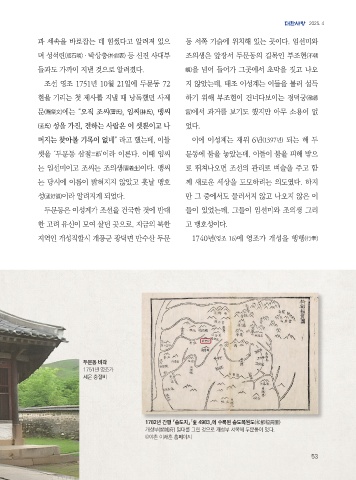 대한사랑 2025. 4
과 세속을 바로잡는 데 힘썼다고 알려져 있으
며 성석린(成石璘)·박상충(朴尙衷) 등 신진 사대부
들과도 가까이 지낸 것으로 알려졌다.
조선 영조 1751년 10월 21일에 두문동 72
현을 기리는 첫 제사를 지낼 때 낭독했던 사제
문(賜祭文)에는 "오직 조씨(曺氏), 임씨(林氏), 맹씨
(孟氏) 성을 가진, 전하는 사람은 이 셋뿐이고 나
머지는 찾아볼 기록이 없네" 라고 했는데, 이들
셋을 '두문동 삼절三節'이라 이른다. 이때 임씨
는 임선미이고 조씨는 조의생(曺義生)이다. 맹씨
는 당시에 이름이 밝혀지지 않았고 훗날 맹호
성(孟好誠)이라 알려지게 되었다.
두문동은 이성계가 조선을 건국한 것에 반대
한 고려 유신이 모여 살던 곳으로, 지금의 북한
지역인 개성직할시 개풍군 광덕면 만수산 두문
동 서쪽 기슭에 위치해 있는 곳이다. 임선미와
조의생은 앞장서 두문동의 길목인 부조현(不朝
峴)을 넘어 들어가 그곳에서 초막을 짓고 나오
지 않았는데, 태조 이성계는 이들을 불러 설득
하기 위해 부조현이 건너다보이는 경덕궁(敬德
宮)에서 과거를 보기도 했지만 아무 소용이 없
었다.
이에 이성계는 재위 6년(1397년) 되는 해 두
문동에 불을 놓았는데, 이들이 불을 피해 밖으
로 뛰쳐나오면 조선의 관리로 벼슬을 주고 함
께 새로운 세상을 도모하려는 의도였다. 하지
만 그 중에서도 물러서지 않고 나오지 않은 이
들이 있었는데, 그들이 임선미와 조의생 그리
고 맹호성이다.
1740년(영조 16)에 영조가 개성을 행행(行幸)
두문동 비각
1751년 영조가
세운 충절비
1782년 간행 「송도지」
개성부(開城府) 일대를 그린 것으로 개성부 서쪽에 두문동이 있다.
53